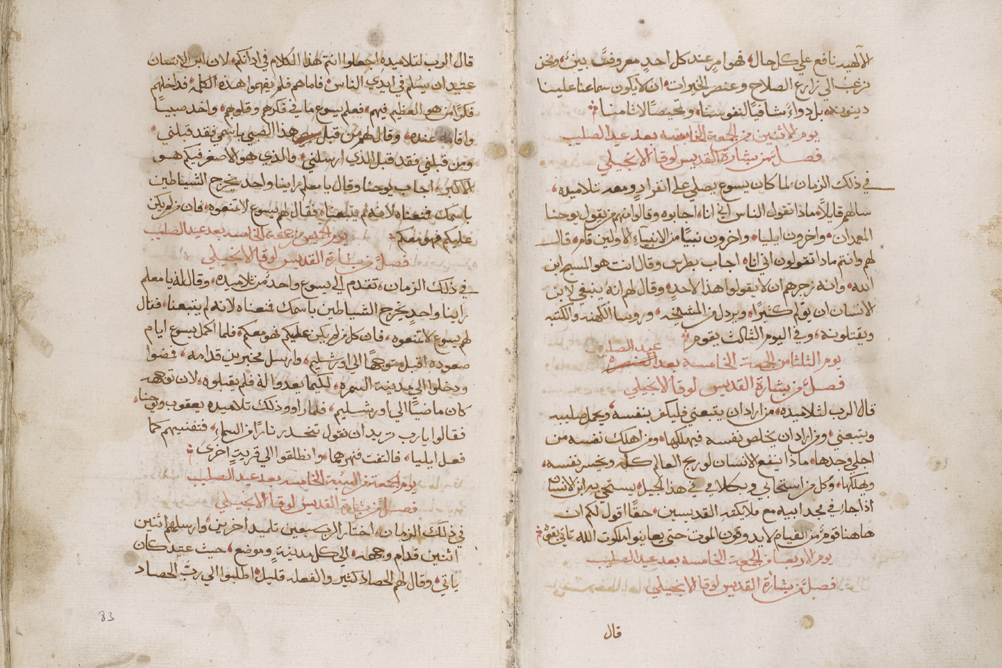 الالهيه نافع علي كل حال فهو امر عند كل احد معروف بين ونحن
نرغب الى زارع الصلاح وعنصر الخيرات ان لا يكون سماعنا علينا
دينونة بل دواء شافيا لنفوسنا وتمحيصا لاثامنا
يوم الاثنين من الجمعة الخامسه بعد عيد الصليب
فصل من بشارة القديس لوقا الانجيلي
في ذلك الزمان لما كان يسوع يصلي على انفراد ومعه تلاميذه
سالهم قايلا ماذا تقول الناس اني انا اجابوه وقالوا منهم من يقول يوحنا
المعمدان واخرون ايليا واخرون نبيا من الانبياء الاولين قام قال
لهم وانتم ماذا تقولون اني انا اجاب بطرس وقال انت هو المسيح ابن
الله وانه زجرهم ان لا يقولوا هذا لاحد وقال لهم انه ينبغي لابن
الانسان ان يولم كثيرا ويرذل من المشيخه وروسا الكهنه والكتبه
ويقتلونه وفي اليوم الثالث يقوم
عيد الصليب
يوم الثلثا من الجمعة الخامسه بعد
فصل من بشارة القديس لوقا الانجيلي
قال الرب لتلاميذه من اراد ان يتبعني فليكفر بنفسه ويحمل صليبه
ويتبعني ومن اراد ان يخلص نفسه فيهلكها ومن اهلك نفسه من
اجلي وجدها ماذا ينفع لانسان لو ربح العالم كله وخسر نفسه
ويهلكها وكل من استحا بي وبكلامي في هذا الجيل يستحي به ابن الانسان
اذا جا في مجد ابيه مع ملايكته القديسين حقا اقول لكم ان
هاهنا قوم من القيام لا يذوقون الموت حتى يعاينوا ملكوت الله تاتي بقوة
يوم الاربعا من الجمعة الخامسه بعد عيد الصليب
فصل من بشارة القديس لوقا الانجيلي
قال
قال الرب لتلاميذه اجعلوا انتم هذا الكلام في اذانكم لان ابن الانسان
عتيد ان يسلم في ايدي الناس فاما هم فلم يفهموا هذه الكلمه فداخلهم
فكرا من هو العظيم فيهم فعلم يسوع ما يفكرهم وقلوبهم واخد صبيا
واقامه عنده وقال لهم من قبل هذا الصبي باسمي فقد قبلني
ومن قبلني فقد قبل الذي ارسلني والذي هو الاصغر فيكم هو
الاكبر اجاب يوحنا وقال يا معلم راينا واحد يخرج الشياطين
باسمك فمنعناه لانه لم يتبعنا فقال لهم يسوع لا تمنعوه فان من لم يكن
عليكم فهو معكم
يوم الخميس من جمعة الخامسه بعد عيد الصليب
فصل من بشارة القديس لوقا الانجيلي
في ذلك الزمان تقدم الى يسوع واحد من تلاميذه وقال له يا معلم
راينا واحد يخرج الشياطين باسمك فمنعناه لانه لم يتبعنا فقال
لهم يسوع لا تمنعوه فان كل من لم يكن عليكم فهو معكم فلما اكمل يسوع ايام
صعوده اقبل متوجها الى اورشليم وارسل مخبرين قدامه فمضوا
ودخلوا الى مدينة السمره لكيما يعدوا له فلم يقبلوه لان توجهه
كان ماضيا الى اورشليم فلما راوو ذلك تلاميذه يعقوب ويوحنا
فقالوا يا رب تريد ان نقول تنحدر نارا من السما فتفنيهم كما
فعل ايليا فالتفت فنهرهما وانطلقوا الى قرية اخرى
يوم الجمعة من الخامسه بعد عيد الصليب
فصل من بشارة القديس لوقا الانجيلي
في ذلك الزمان اختار الرب سبعين تلميذ اخرين وارسلهم اثنين
اثنين قدام وجهه الى كل مدينة وموضع حيث عتيد كان
ياتي وقال لهم الحصاد كثير والفعله قليل اطلبوا الى رب الحصاد
83